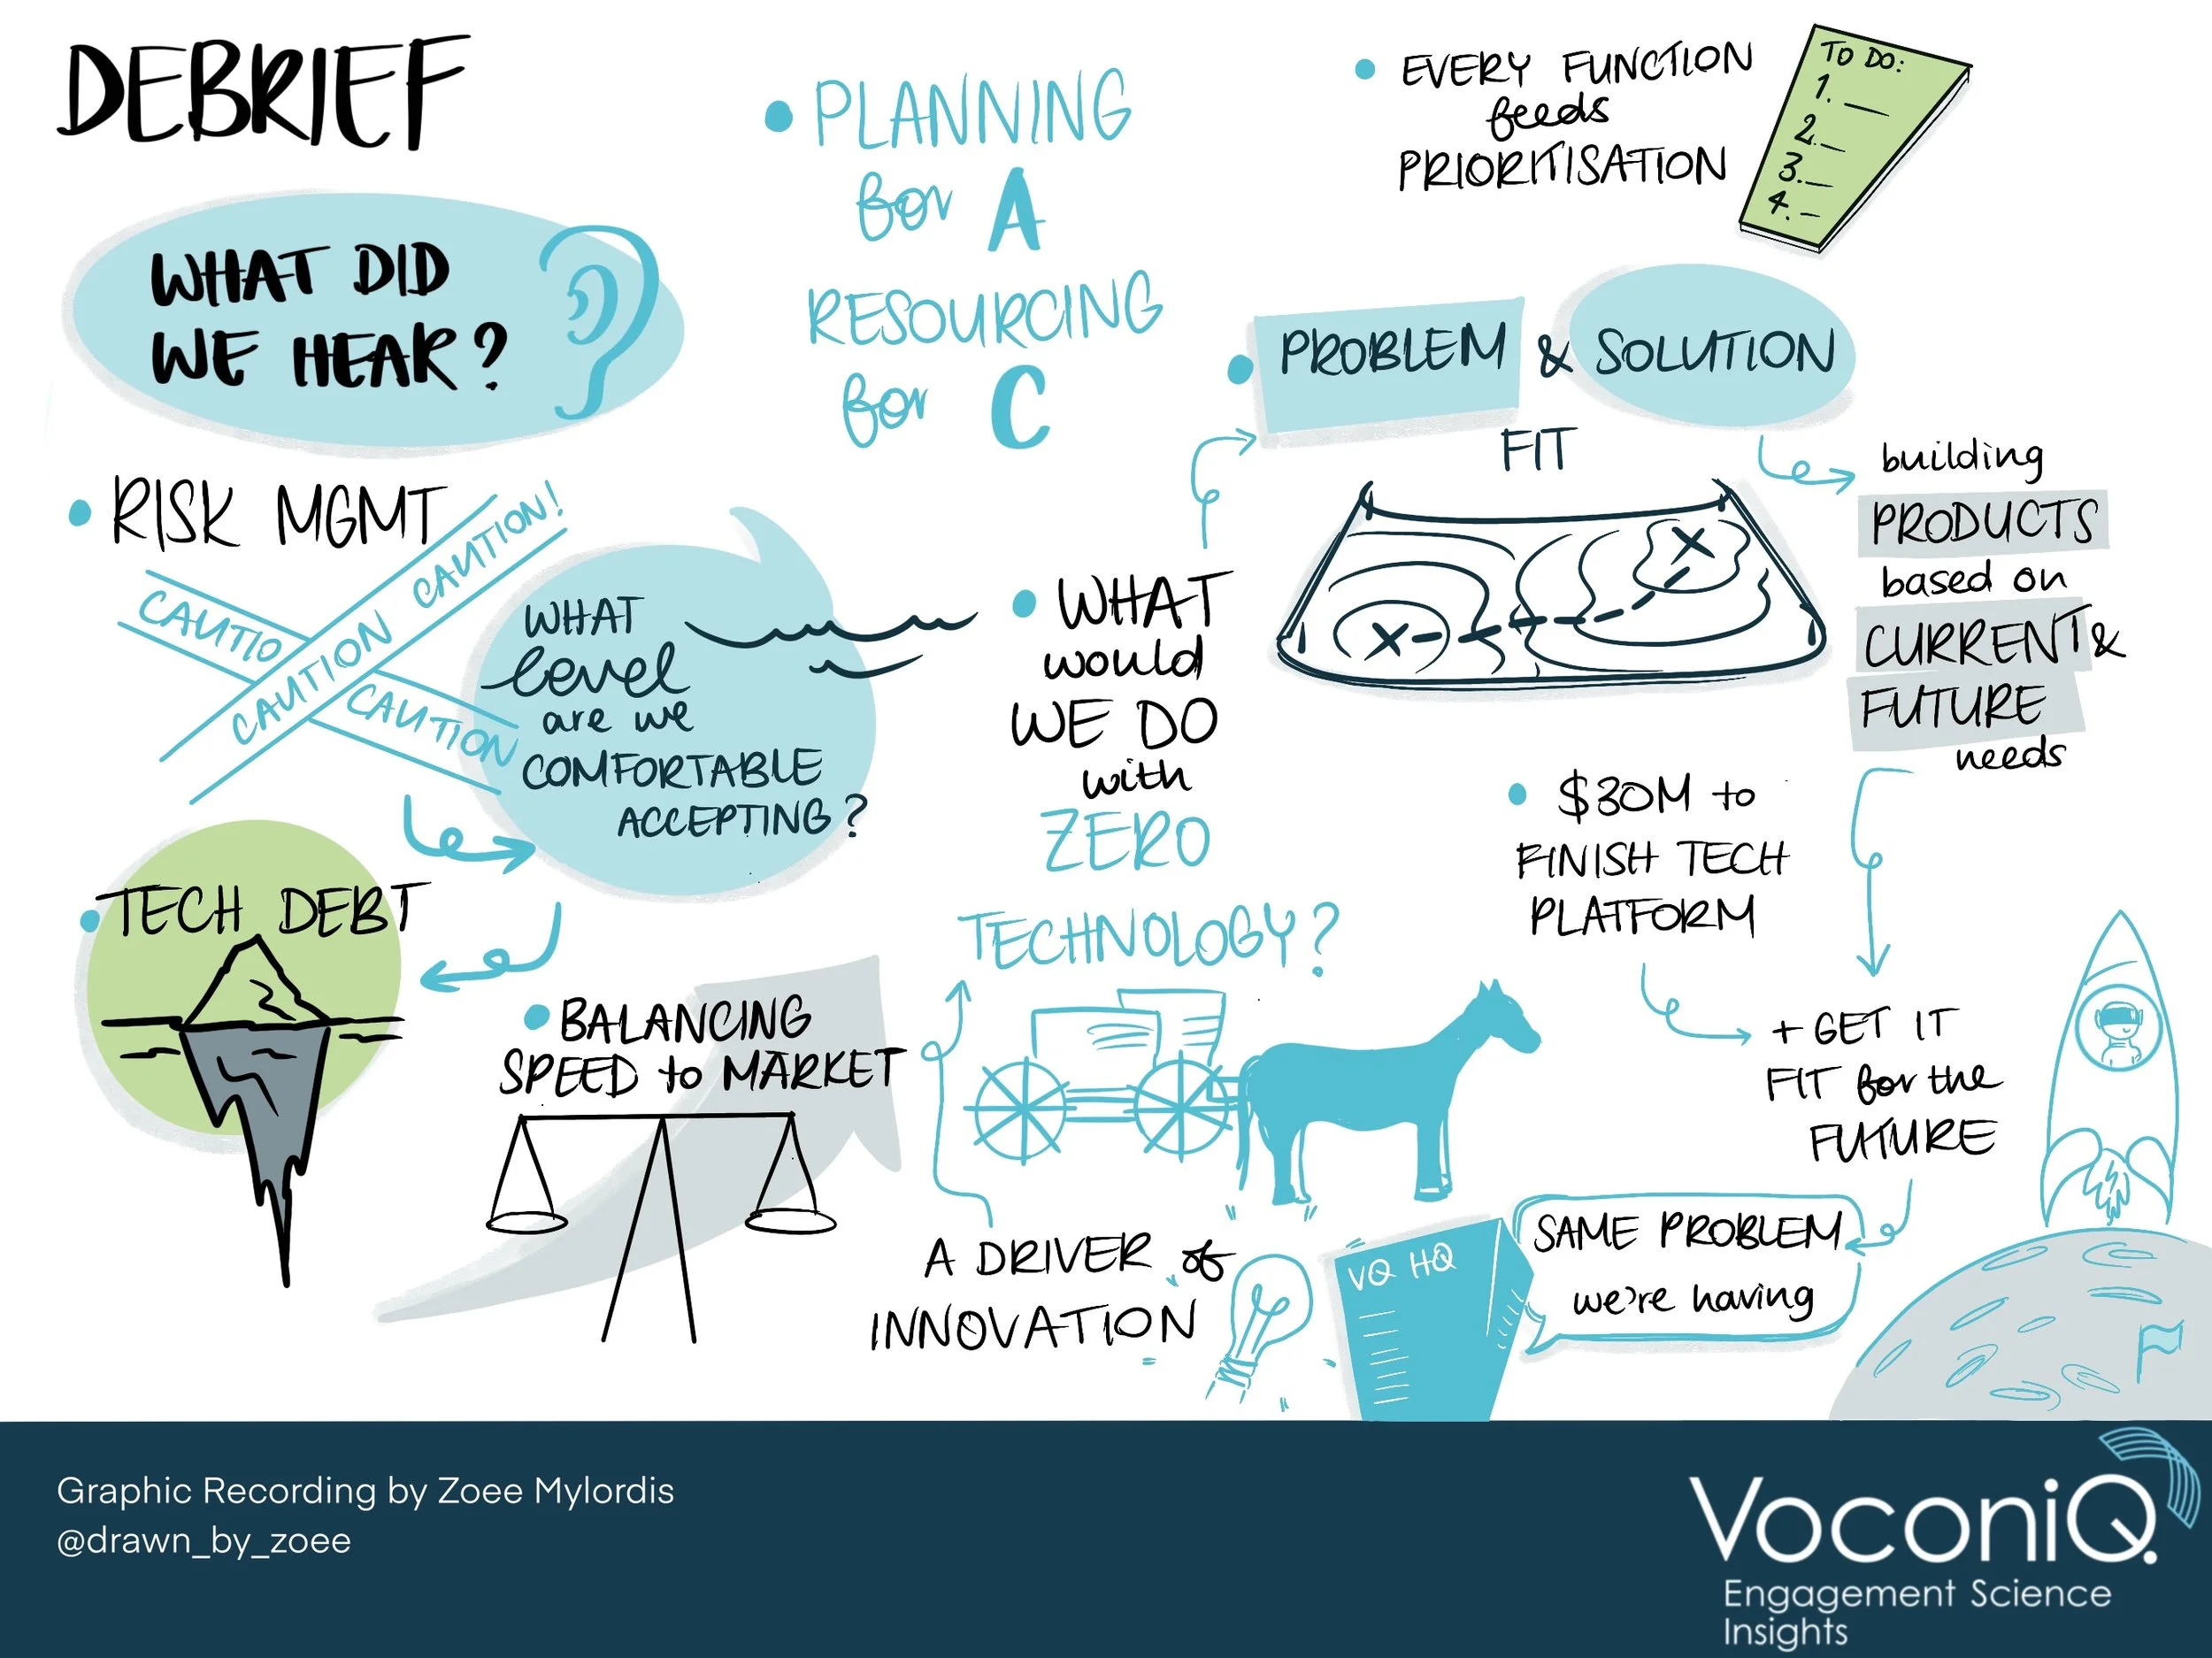 DEBRIEF
WHAT DID
WE HEAR?
• RISK MGMT
CAUTION!
CAUTION
CAUTIO
CAUTION
WHAT
level
are we
COMFORTABLE
ACCEPTING?
• TECH DEBT
• BALANCING
SPEED to MARKET
• PLANNING
for A
RESOURCING
for C
• WHAT
would
WE DO
with
ZERO
TECHNOLOGY?
A DRIVER of
INNOVATION
• EVERY FUNCTION
feeds
PRIORITISATION
TO DO:
1.
2.
3.
4.
• PROBLEM & SOLUTION
FIT
X
X
building
PRODUCTS
based on
CURRENT &
FUTURE
needs
• $30M to
FINISH TECH
PLATFORM
+ GET IT
FIT for the
FUTURE
SAME PROBLEM
we're having
VQ HQ
Graphic Recording by Zoee Mylordis
@drawn_by_zoee
VoconiQ
Engagement Science
Insights